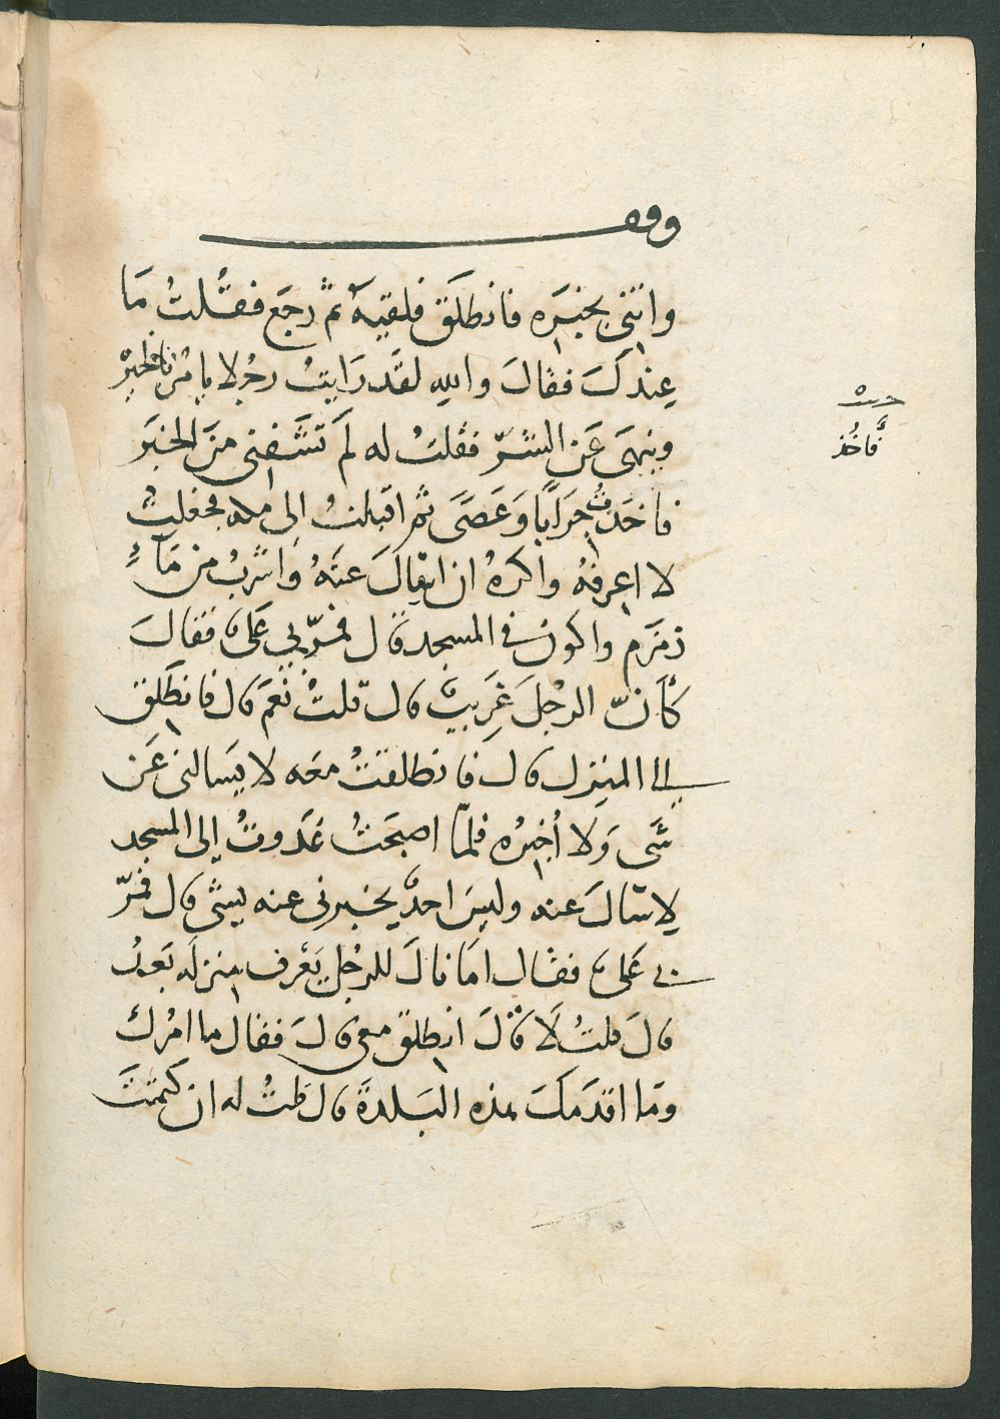 وقف
وائتني بخبره فانطلق فلقيه ثم رجع فقلت ما
عندك فقال والله لقد رايت رجلا يامر بالخير
وينهى عن الشر فقلت له لم تشفني من الخبر
فاخذت جرابا وعصى ثم اقبلت الى مكه فجعلت
لا اعرفه واكره ان اسال عنه واشرب من ماء
زمزم واكون في المسجد قال فمر بي علي فقال
كأن الرجل غريب قال قلت نعم قال فانطلق
الى المنزل قال فانطلقت معه لا يسالني عن
شي ولا أخبره فلما اصبحت غدوت إلى المسجد
لاسال عنه وليس احد يخبرني عنه بشي قال فمر
بي علي فقال اما نال للرجل يعرف منزله بعد
قال قلت لا قال انطلق معي قال فقال ما امرك
وما اقدمك هذه البلدة قال قلت له ان كتمت
فأخذ